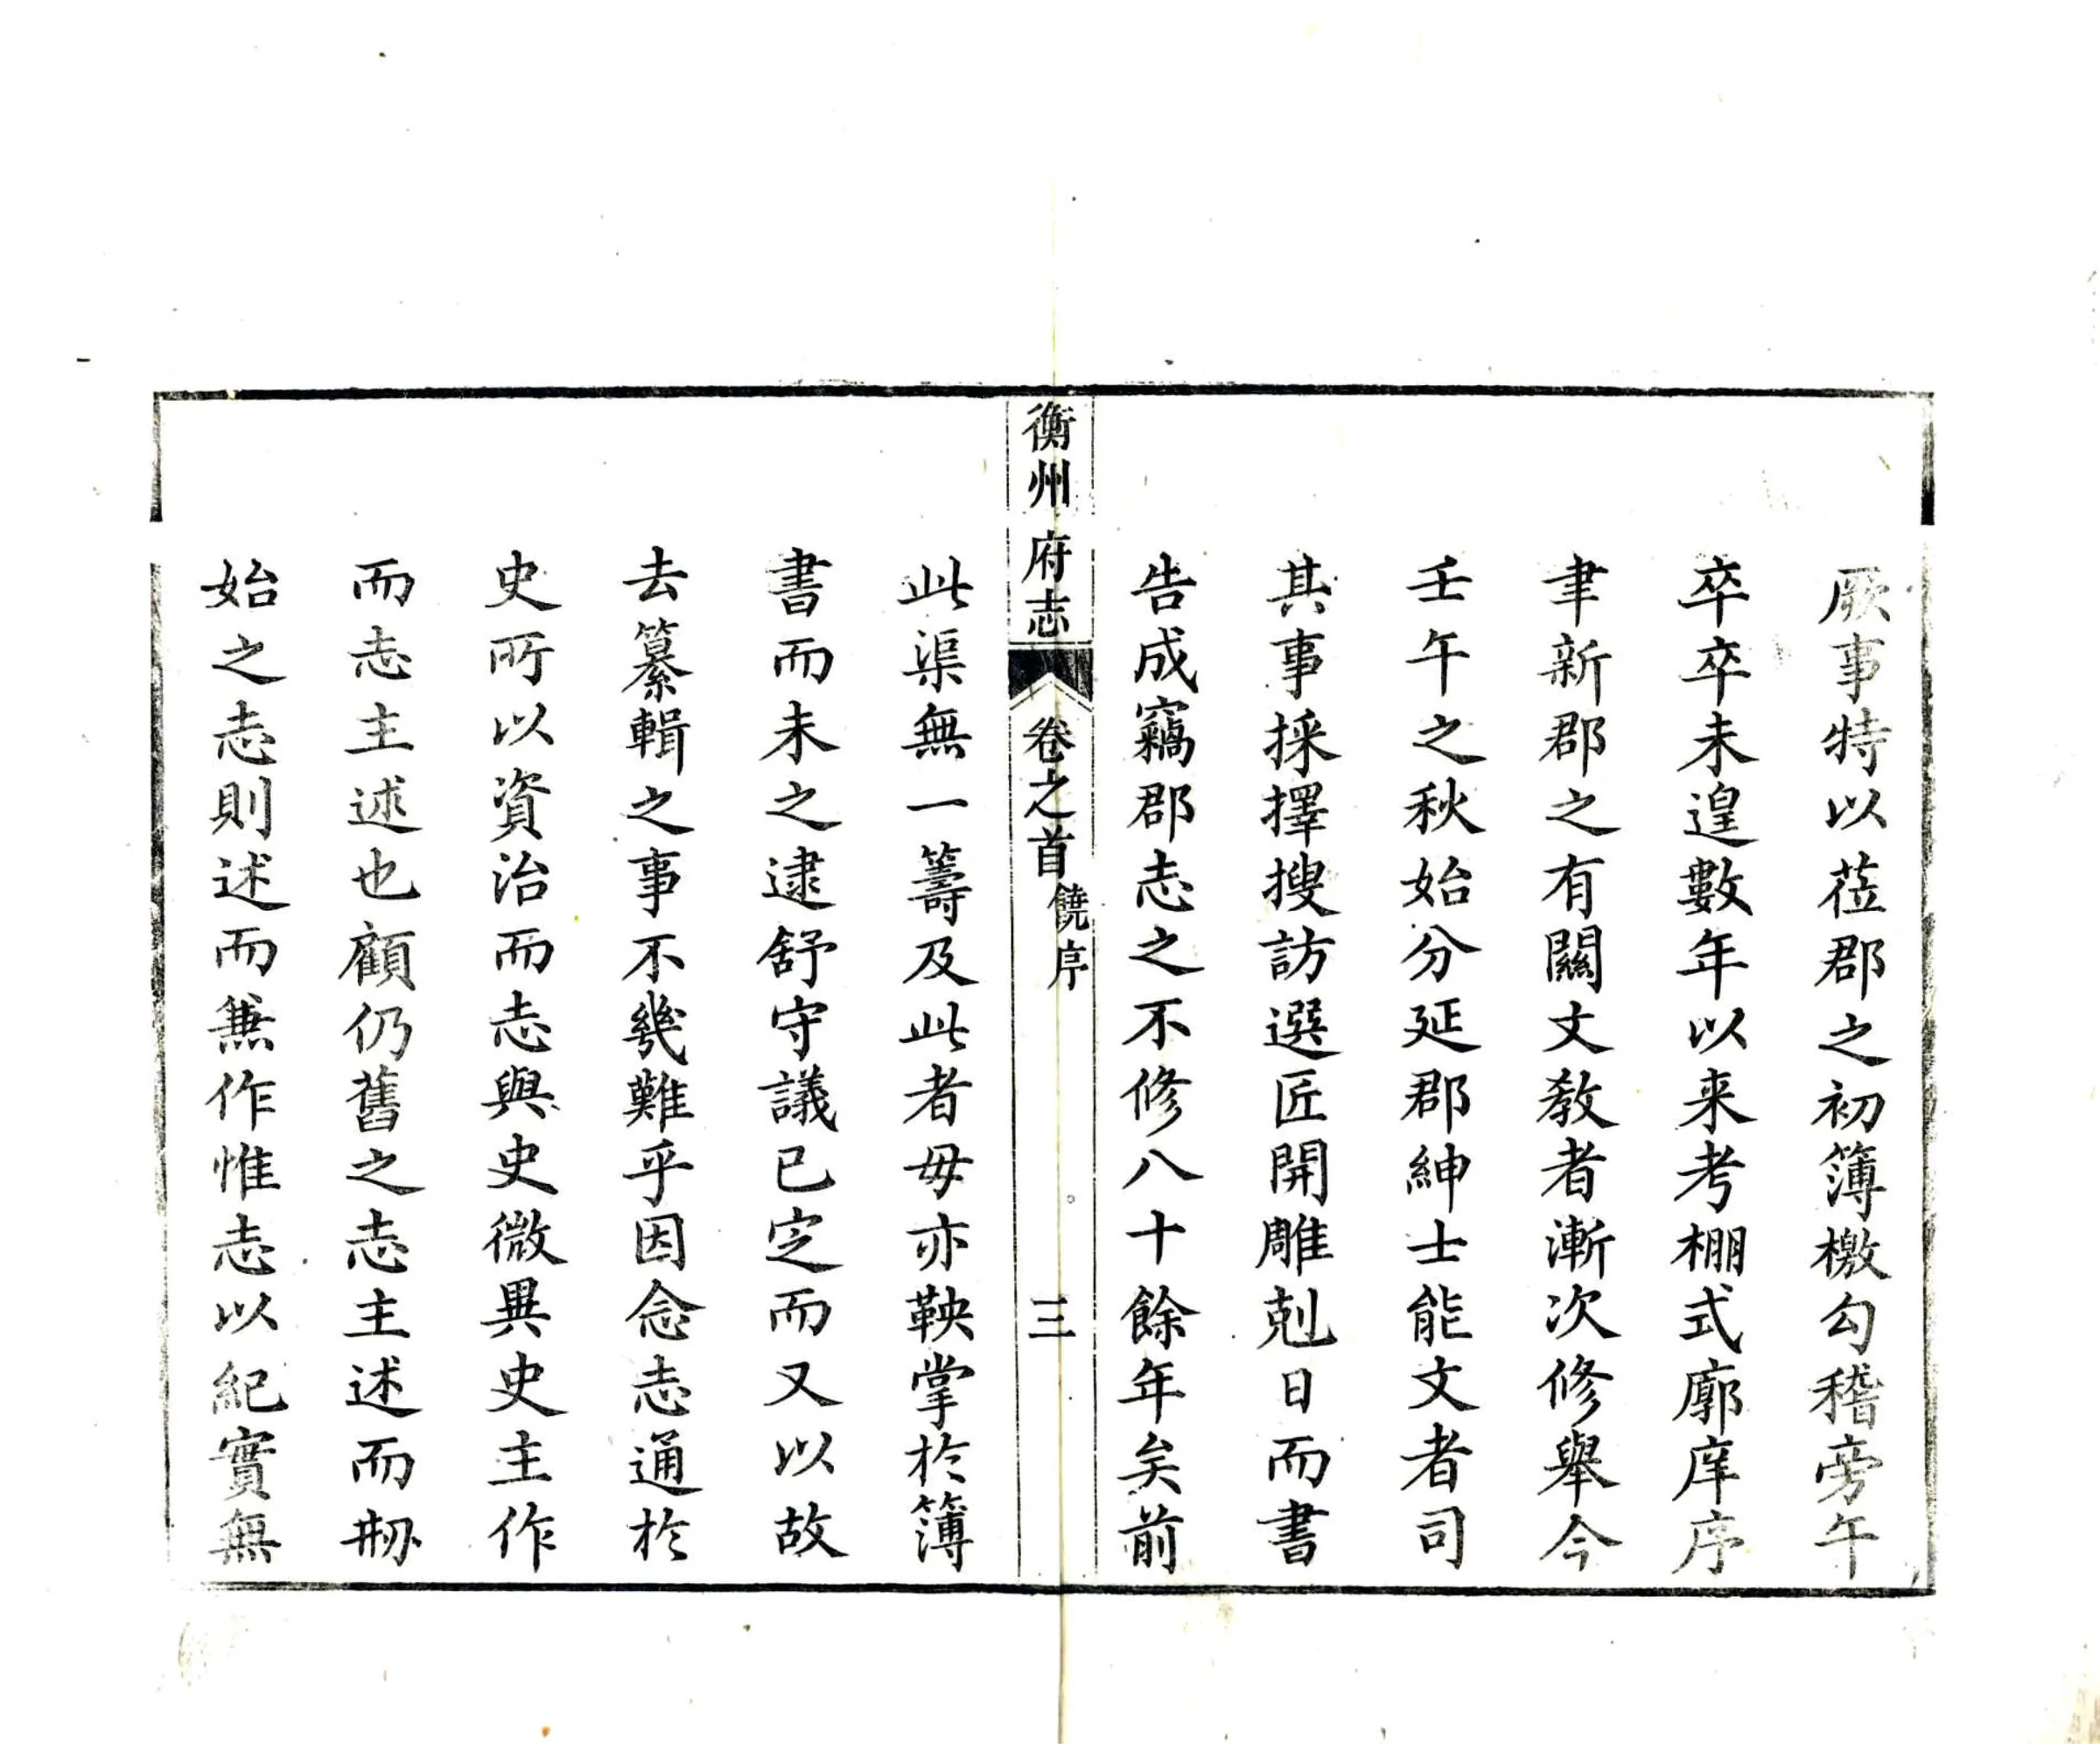 厥事特以莅郡之初簿檄勾稽旁午
卒卒未遑數年以来考棚式廓庠序
聿新郡之有關文教者漸次修舉今
壬午之秋始分延郡紳士能文者司
其事採擇搜訪選匠開雕剋日而書
告成竊郡志之不修八十餘年矣前
衡州府志
卷之首
饒序
三
此渠無一籌及此者毋亦鞅掌於簿
書而未之逮舒守議已定而又以故
去纂輯之事不幾難乎因念志通於
史所以資治而志與史微異史主作
而志主述也顧仍舊之志主述而刱
始之志則述而兼作惟志以紀實無